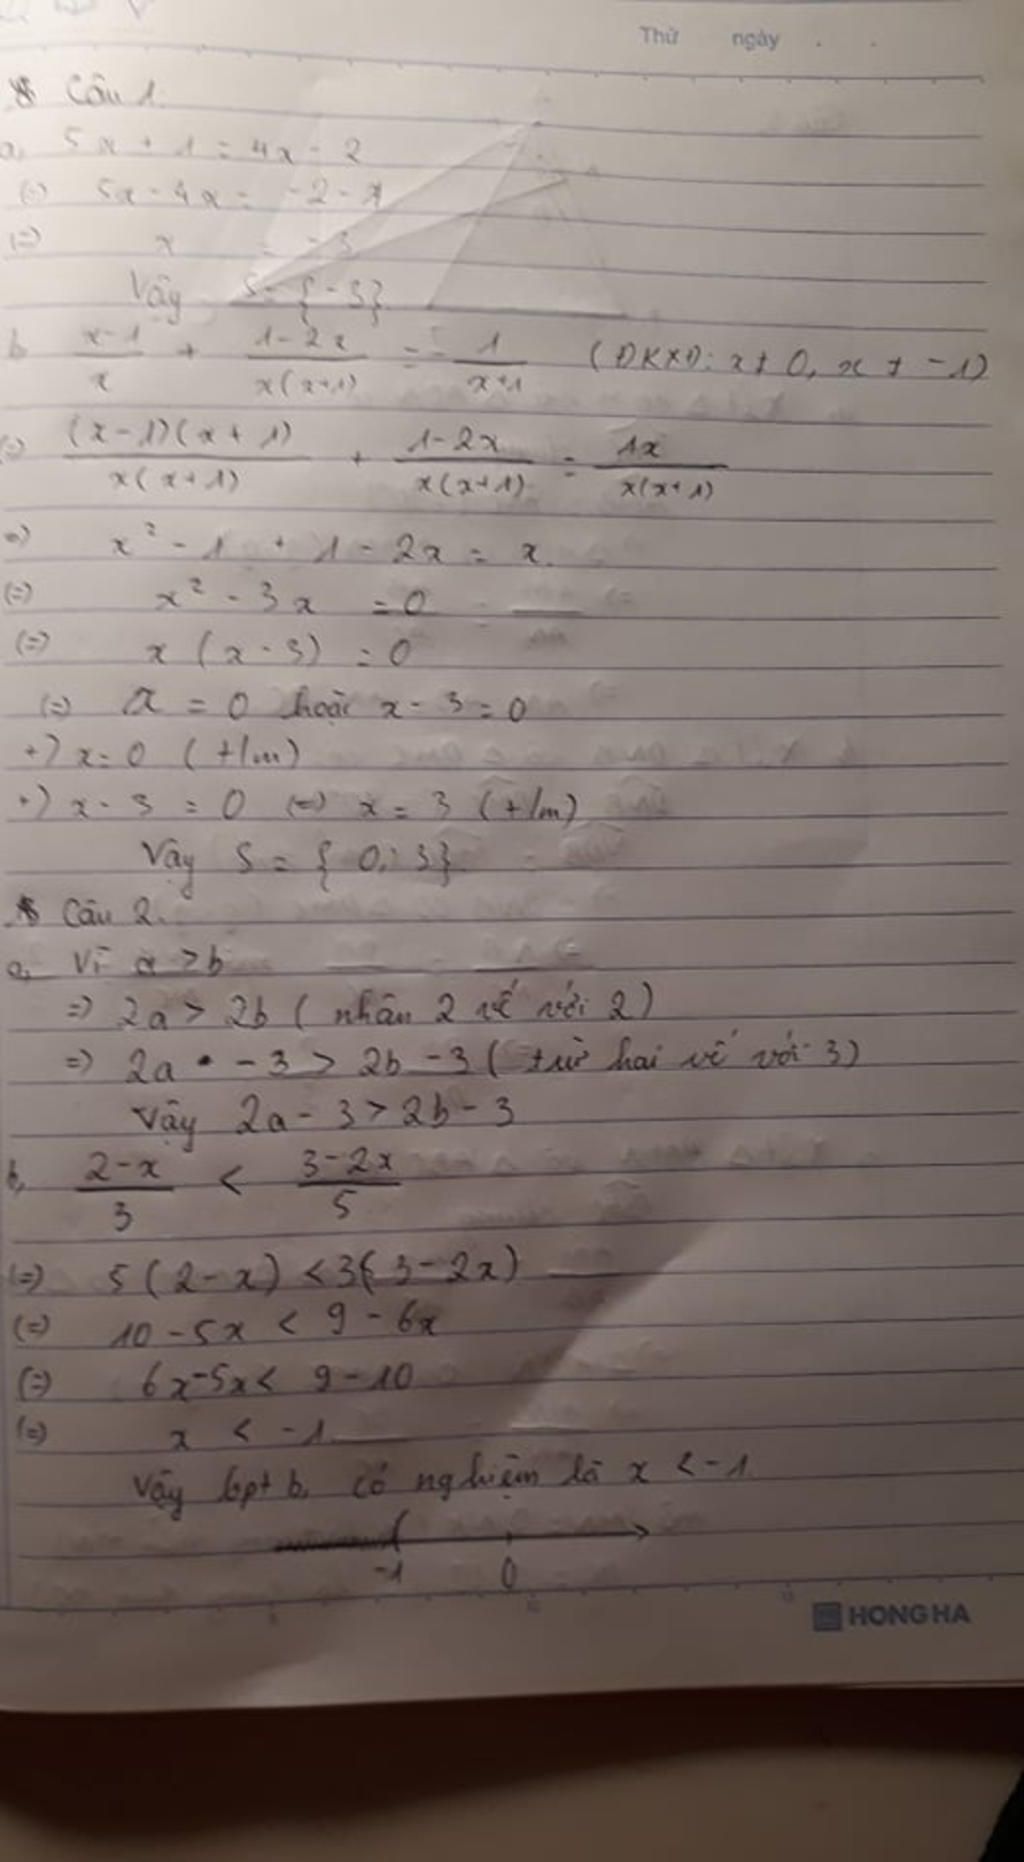 Thứ ngày . .
* Câu 1.
a, 5x + 1 = 4x - 2
(=) 5x - 4x = -2 - 1
(=) x = -3
Vậy S = {-3}
b, x-1/x + 1-2x/x(x+1) = 1/x+1 (ĐKXĐ: x ≠ 0, x ≠ -1)
(=) (x-1)(x+1)/x(x+1) + 1-2x/x(x+1) = 1x/x(x+1)
=) x² - 1 + 1 - 2x = x.
(=) x² - 3x = 0
(=) x (x - 3) = 0
(=) x = 0 hoặc x - 3 = 0
+) x = 0 (t/m)
+) x - 3 = 0 (=) x = 3 (t/m)
Vậy S = {0; 3}
* Câu 2.
a, Vì a > b
=) 2a > 2b (nhân 2 vế với 2)
=) 2a - 3 > 2b - 3 (trừ hai vế với 3)
Vậy 2a - 3 > 2b - 3
b, 2-x/3 < 3-2x/5
(=) 5(2-x) < 3(3-2x)
(=) 10 - 5x < 9 - 6x
(=) 6x - 5x < 9 - 10
(=) x < -1
Vậy bpt b, có nghiệm là x < -1
-1 0
HONG HA